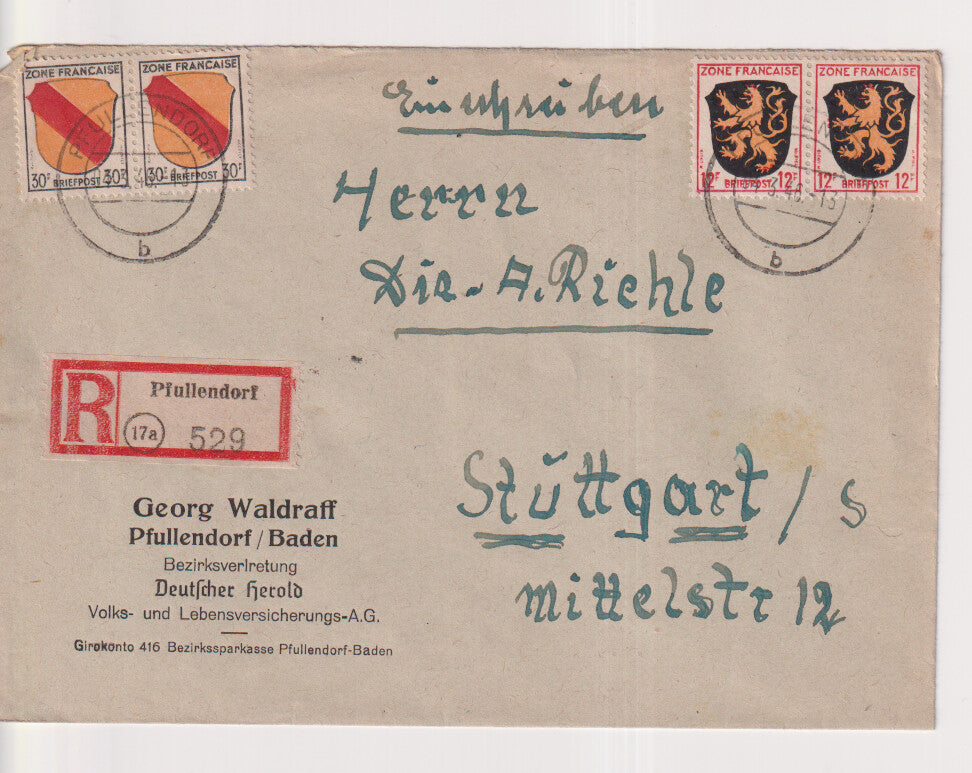 ZONE FRANÇAISE ZONE FRANÇAISE
30F BRIEFPOST 30F 30F BRIEFPOST 30F
PFULLENDORF
b
Einschreiben
ZONE FRANÇAISE ZONE FRANÇAISE
12F BRIEFPOST 12F 12F BRIEFPOST 12F
b
Herrn
Dir. A. Riehle
R Pfullendorf
17a 529
Stuttgart / S
Mittelstr 12
Georg Waldraff
Pfullendorf / Baden
Bezirksvertretung
Deutscher Herold
Volks- und Lebensversicherungs-A.G.
Girokonto 416 Bezirkssparkasse Pfullendorf-Baden